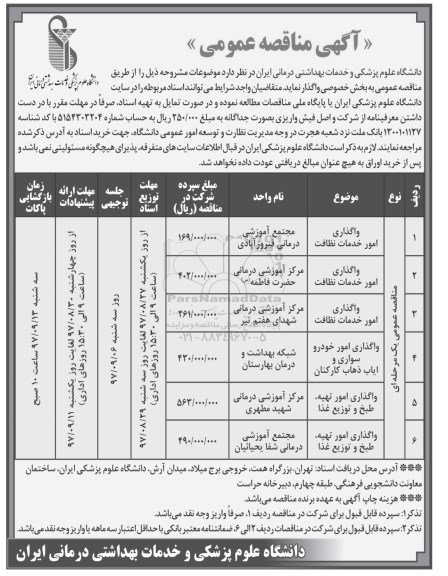 « آگهی مناقصه عمومی »
دانشگاه علوم پزشکی و خدمات بهداشتی درمانی ایران
دانشگاه علوم پزشکی و خدمات بهداشتی درمانی ایران در نظر دارد موضوعات مشروحه ذیل را از طریق
مناقصه عمومی به بخش خصوصی واگذار نماید. متقاضیان واجد شرایط می توانند اسناد مربوطه را در سایت
دانشگاه علوم پزشکی ایران یا پایگاه ملی مناقصات مطالعه نموده و در صورت تمایل به تهیه اسناد، صرفاً در مهلت مقرر با در دست
داشتن معرفینامه از شرکت و اصل فیش واریزی بصورت جداگانه به مبلغ ۲۵۰/۰۰۰ ریال به حساب شماره ۵۱۵۴۳۰۳۲۰۴ با کد شناسه
۱۳۰۰۱۰۱۱۲۷ بانک ملت نزد شعبه هجرت در وجه مدیریت نظارت و توسعه امور عمومی دانشگاه، جهت خرید اسناد به آدرس ذکر شده
مراجعه نمایند. لازم به ذکر است دانشگاه علوم پزشکی ایران در قبال اطلاعات سایت های متفرقه، پذیرای هیچگونه مسئولیتی نمی باشد و
پس از خرید اوراق به هیچ عنوان مبالغ دریافتی عودت داده نخواهد شد.
ردیف نوع موضوع نام واحد مبلغ سپرده شرکت در مناقصه (ریال) مهلت توزیع اسناد جلسه توجیهی مهلت ارائه پیشنهادات زمان بازگشایی پاکات
۱ واگذاری امور خدمات نظافت مجتمع آموزشی درمانی فیروزآبادی ۱۶۹/۰۰۰/۰۰۰
۲ واگذاری امور خدمات نظافت مرکز آموزشی درمانی حضرت فاطمه(س) ۴۰۲/۰۰۰/۰۰۰
۳ واگذاری امور خدمات نظافت مرکز آموزشی درمانی شهدای هفتم تیر ۲۶۱/۰۰۰/۰۰۰
۴ واگذاری امور خودرو سواری و ایاب ذهاب کارکنان شبکه بهداشت و درمان بهارستان ۴۳۰/۰۰۰/۰۰۰
۵ واگذاری امور تهیه، طبخ و توزیع غذا مرکز آموزشی درمانی شهید مطهری ۵۶۳/۰۰۰/۰۰۰
۶ واگذاری امور تهیه، طبخ و توزیع غذا مجتمع آموزشی درمانی شفا یحیائیان ۴۹۰/۰۰۰/۰۰۰
مناقصه عمومی یک مرحله ای
از روز یکشنبه ۹۷/۰۸/۲۷ لغایت روز سه شنبه ۹۷/۰۸/۲۹
(ساعت ۹ الی ۱۵:۳۰ روزهای اداری)
روز سه شنبه ۹۷/۰۹/۰۶
از روز چهارشنبه ۹۷/۰۸/۳۰ لغایت روز یکشنبه ۹۷/۰۹/۱۱
(ساعت ۹ الی ۱۵:۳۰ روزهای اداری)
سه شنبه ۹۷/۰۹/۱۳ ساعت ۱۰ صبح
ParsNamadData
۰۲۱-۸۸۳۴۹۶۷۰-۵
*** آدرس محل دریافت اسناد: تهران، بزرگراه همت، خروجی برج میلاد، میدان آرش، دانشگاه علوم پزشکی ایران، ساختمان
معاونت دانشجویی فرهنگی، طبقه چهارم، دبیرخانه حراست
*** هزینه چاپ آگهی به عهده برنده مناقصه می باشد.
تذکر۱: سپرده قابل قبول برای شرکت در مناقصه ردیف ۱، صرفاً واریز وجه نقد می باشد.
تذکر۲: سپرده قابل قبول برای شرکت در مناقصات ردیف ۲ الی ۶، ضمانتنامه معتبر بانکی با حداقل اعتبار سه ماهه یا واریز وجه نقد می باشد.
دانشگاه علوم پزشکی و خدمات بهداشتی درمانی ایران